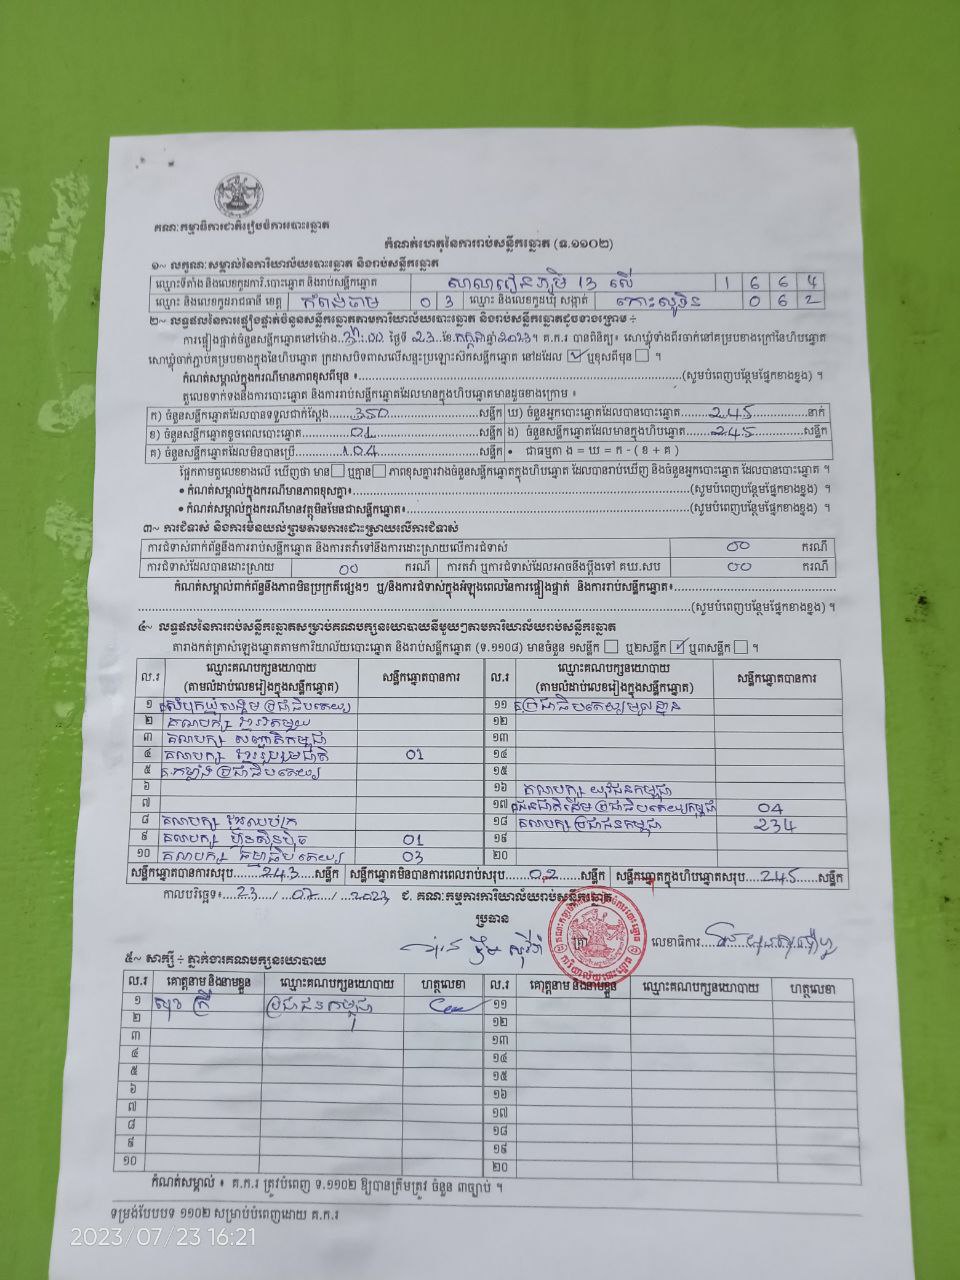 គណៈកម្មាធិការជាតិរៀបចំការបោះឆ្នោត
កំណត់ហេតុនៃការរាប់សន្លឹកឆ្នោត (ទ.១១០២)
១~ លក្ខណៈសម្គាល់នៃការិយាល័យបោះឆ្នោត និងរាប់សន្លឹកឆ្នោត
ឈ្មោះទីតាំង និងលេខកូដការិ.បោះឆ្នោត និងរាប់សន្លឹកឆ្នោត សាលារៀនភូមិ 13 លើ 1 6 6 4
ឈ្មោះ និងលេខកូដរាជធានី ខេត្ត កំពង់ចាម 0 3 ឈ្មោះ និងលេខកូដឃុំ សង្កាត់ កោះសូទិន 0 6 2
២~ លទ្ធផលនៃការផ្ទៀងផ្ទាត់ចំនួនសន្លឹកឆ្នោតតាមការិយាល័យបោះឆ្នោត និងរាប់សន្លឹកឆ្នោតដូចខាងក្រោម ÷
ការផ្ទៀងផ្ទាត់ចំនួនសន្លឹកឆ្នោតនៅម៉ោង ថ្ងៃទី 23 ខែ កក្កដា ឆ្នាំ 2023។ គ.ក.រ បានពិនិត្យ៖ សោឃ្លុំទាំងពីរចាក់នៅគម្របខាងក្រៅនៃហិបឆ្នោត
សោឃ្លុំចាក់ភ្ជាប់គម្របខាងក្នុងនៃហិបឆ្នោត ក្រដាសបិទពាសលើសន្ទះប្រឡោះសិកសន្លឹកឆ្នោត នៅដដែល ☑ ឬខុសពីមុន ☐ ។
កំណត់សម្គាល់ក្នុងករណីមានភាពខុសពីមុន ៖ (សូមបំពេញបន្ថែមផ្នែកខាងខ្នង) ។
តួលេខទាក់ទងនឹងការបោះឆ្នោត និងការរាប់សន្លឹកឆ្នោតដែលមានក្នុងហិបឆ្នោតមានដូចខាងក្រោម ៖
ក) ចំនួនសន្លឹកឆ្នោតដែលបានទទួលជាក់ស្តែង 350 សន្លឹក ឃ) ចំនួនអ្នកបោះឆ្នោតដែលបានបោះឆ្នោត 245 នាក់
ខ) ចំនួនសន្លឹកឆ្នោតខូចពេលបោះឆ្នោត 01 សន្លឹក ង) ចំនួនសន្លឹកឆ្នោតដែលមានក្នុងហិបឆ្នោត 245 សន្លឹក
គ) ចំនួនសន្លឹកឆ្នោតដែលមិនបានប្រើ 104 សន្លឹក • ជាធម្មតា ង = ឃ = ក - ( ខ + គ )
ផ្អែកតាមតួលេខខាងលើ ឃើញថា មាន ☐ ឬគ្មាន ☐ ភាពខុសគ្នារវាងចំនួនសន្លឹកឆ្នោតក្នុងហិបឆ្នោត ដែលបានរាប់ឃើញ និងចំនួនអ្នកបោះឆ្នោត ដែលបានបោះឆ្នោត ។
• កំណត់សម្គាល់ក្នុងករណីមានភាពខុសគ្នា៖ (សូមបំពេញបន្ថែមផ្នែកខាងខ្នង) ។
• កំណត់សម្គាល់ក្នុងករណីមានវត្ថុមិនមែនជាសន្លឹកឆ្នោត៖ (សូមបំពេញបន្ថែមផ្នែកខាងខ្នង) ។
៣~ ការជំទាស់ និងការមិនយល់ព្រមតាមការដោះស្រាយលើការជំទាស់
ការជំទាស់ពាក់ព័ន្ធនឹងការរាប់សន្លឹកឆ្នោត និងការតវ៉ាទៅនឹងការដោះស្រាយលើការជំទាស់ 00 ករណី
ការជំទាស់ដែលបានដោះស្រាយ 00 ករណី ការតវ៉ា ឬការជំទាស់ដែលអាចនឹងប្តឹងទៅ គឃ.សប 00 ករណី
កំណត់សម្គាល់ពាក់ព័ន្ធនឹងភាពមិនប្រក្រតីផ្សេងៗ ឬ/និងការជំទាស់ក្នុងអំឡុងពេលនៃការផ្ទៀងផ្ទាត់ និងការរាប់សន្លឹកឆ្នោត៖
(សូមបំពេញបន្ថែមផ្នែកខាងខ្នង) ។
៤~ លទ្ធផលនៃការរាប់សន្លឹកឆ្នោតសម្រាប់គណបក្សនយោបាយនីមួយៗតាមការិយាល័យរាប់សន្លឹកឆ្នោត
តារាងកត់ត្រាសំឡេងឆ្នោតតាមការិយាល័យបោះឆ្នោត និងរាប់សន្លឹកឆ្នោត (ទ.១១០៨) មានចំនួន ១សន្លឹក ☐ ឬ២សន្លឹក ☑ ឬ៣សន្លឹក ☐ ។
ល.រ ឈ្មោះគណបក្សនយោបាយ (តាមលំដាប់លេខរៀងក្នុងសន្លឹកឆ្នោត) សន្លឹកឆ្នោតបានការ ល.រ ឈ្មោះគណបក្សនយោបាយ (តាមលំដាប់លេខរៀងក្នុងសន្លឹកឆ្នោត) សន្លឹកឆ្នោតបានការ
១ សំបុកឃ្មុំសង្គមប្រជាធិបតេយ្យ ១១ គ.ប្រជាធិបតេយ្យមូលដ្ឋាន
២ គណបក្ស ខ្មែរតែមួយ ១២
៣ គណបក្ស សញ្ជាតិកម្ពុជា ១៣
៤ គណបក្ស ខ្មែររួបរួមជាតិ 01 ១៤
៥ គ.កម្លាំងប្រជាធិបតេយ្យ ១៥
៦ ១៦ គណបក្ស យុវជនកម្ពុជា
៧ ១៧ ជនជាតិដើមប្រជាធិបតេយ្យកម្ពុជា 04
៨ គណបក្ស ខ្មែរអភិរក្ស ១៨ គណបក្សប្រជាជនកម្ពុជា 234
៩ គណបក្ស ហ៊្វុនស៊ិនប៉ិច 01 ១៩
១០ គណបក្ស ធម្មាធិបតេយ្យ 03 ២០
សន្លឹកឆ្នោតបានការសរុប 243 សន្លឹក សន្លឹកឆ្នោតមិនបានការពេលរាប់សរុប 02 សន្លឹក សន្លឹកឆ្នោតក្នុងហិបឆ្នោតសរុប 245 សន្លឹក
កាលបរិច្ឆេទ៖ 23 / 07 / 2023 ជ. គណៈកម្មការការិយាល័យរាប់សន្លឹកឆ្នោត
ប្រធាន
ត្រា លេខាធិការ
៥~ សាក្សី ÷ ភ្នាក់ងារគណបក្សនយោបាយ
ល.រ គោត្តនាម និងនាមខ្លួន ឈ្មោះគណបក្សនយោបាយ ហត្ថលេខា ល.រ គោត្តនាម និងនាមខ្លួន ឈ្មោះគណបក្សនយោបាយ ហត្ថលេខា
១ ប្រជាជនកម្ពុជា ១១
២ ១២
៣ ១៣
៤ ១៤
៥ ១៥
៦ ១៦
៧ ១៧
៨ ១៨
៩ ១៩
១០ ២០
កំណត់សម្គាល់ ៖ គ.ក.រ ត្រូវបំពេញ ទ.១១០២ ឱ្យបានត្រឹមត្រូវ ចំនួន ៣ច្បាប់ ។
ទម្រង់បែបបទ ១១០២ សម្រាប់បំពេញដោយ គ.ក.រ
2023/07/23 16:21